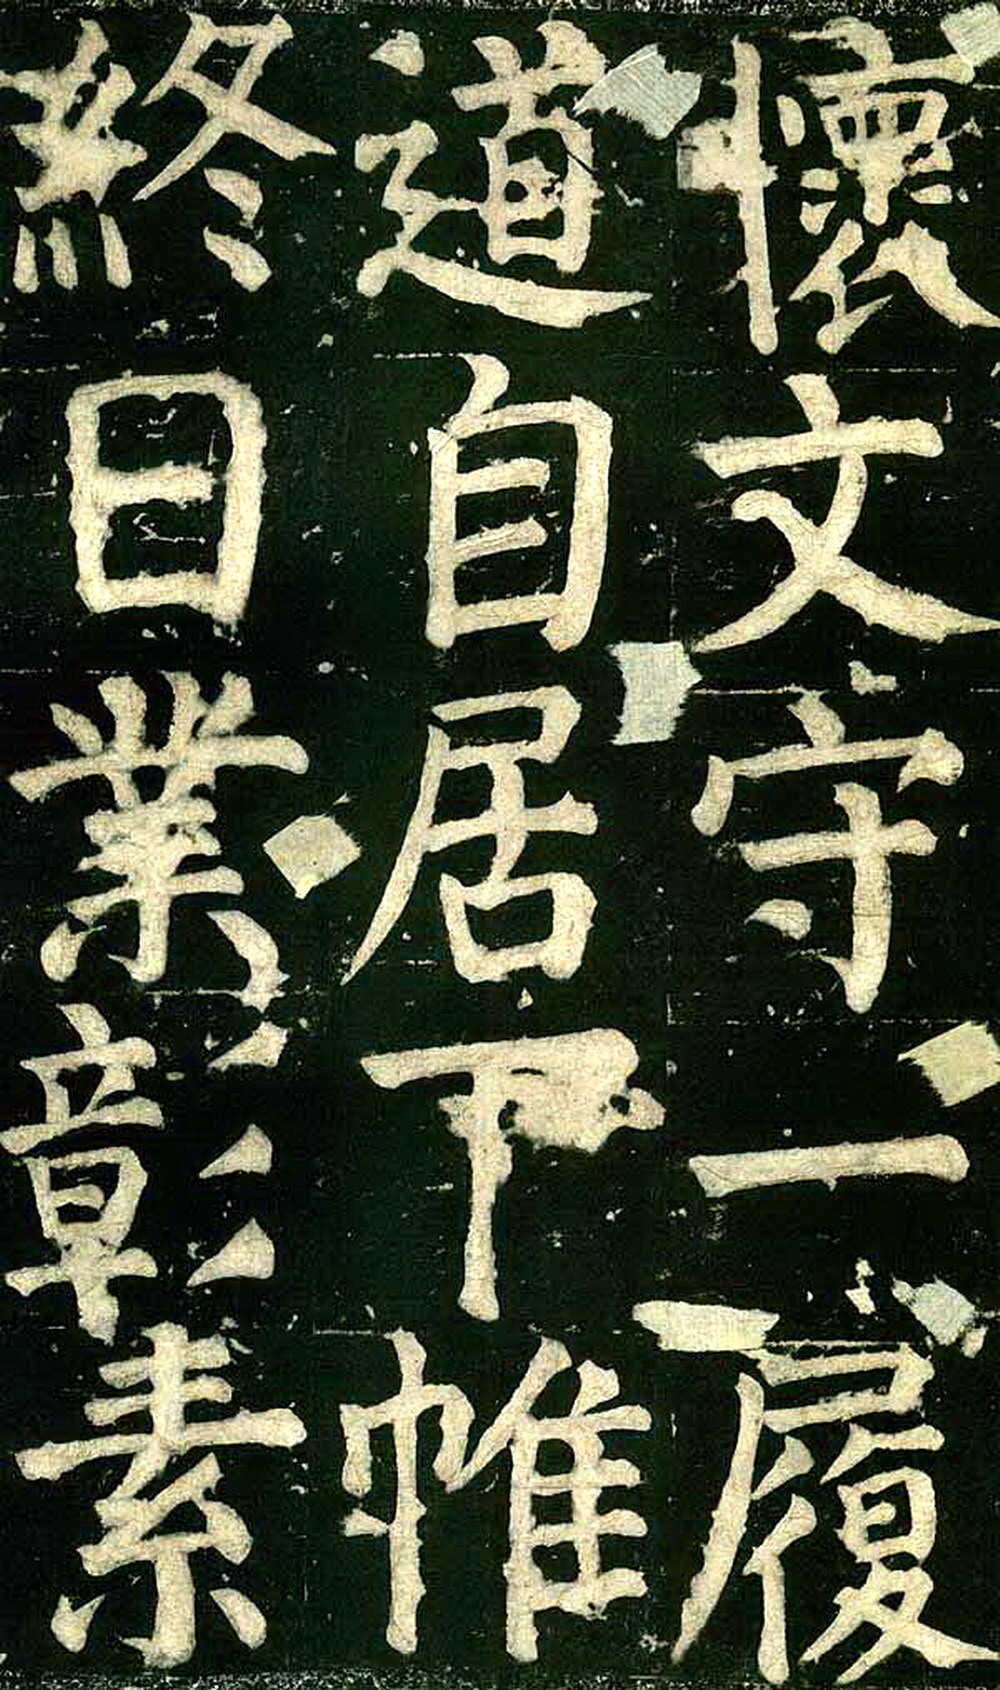 懷文守一履
道自居下帷
終日業彰素